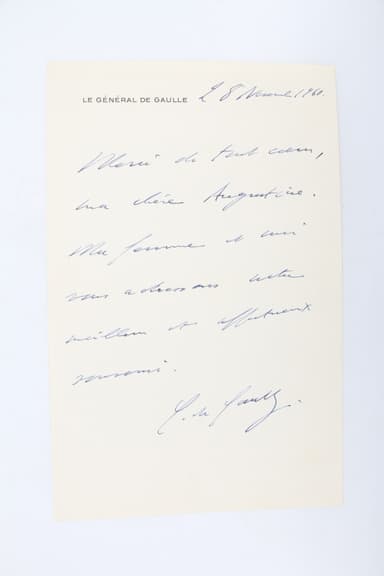 LE GÉNÉRAL DE GAULLE
28 Novembre 1960.
Merci de tout cœur,
ma chère Augustine.
Ma femme et moi
vous adressons notre
meilleur et affectueux
souvenir.
C. de Gaulle.